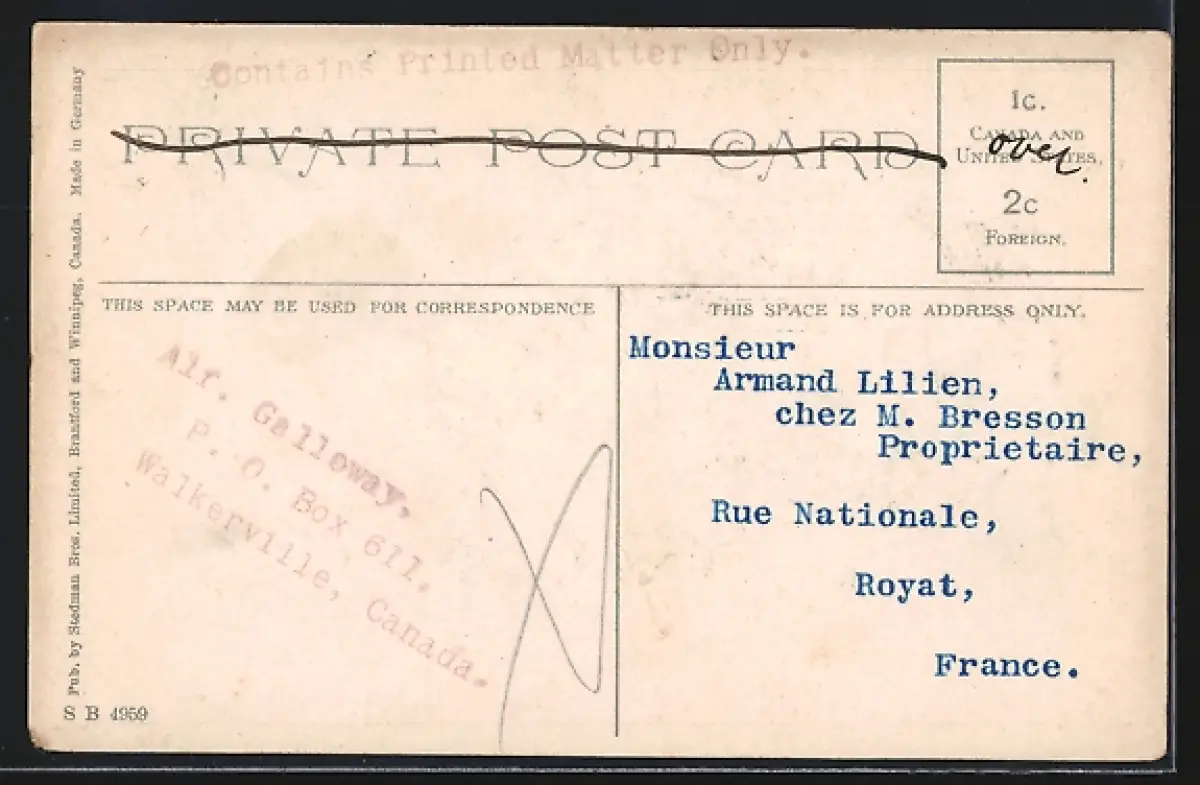 Contains Printed Matter Only.
PRIVATE POST CARD
1c.
CANADA AND
UNITED STATES.
over.
2c
FOREIGN.
THIS SPACE MAY BE USED FOR CORRESPONDENCE
THIS SPACE IS FOR ADDRESS ONLY.
Alf. Galloway,
P. O. Box 611.
Walkerville, Canada.
Monsieur
Armand Lilien,
chez M. Bresson
Proprietaire,
Rue Nationale,
Royat,
France.
Pub. by Stedman Bros. Limited, Brantford and Winnipeg, Canada. Made in Germany
S B 4959